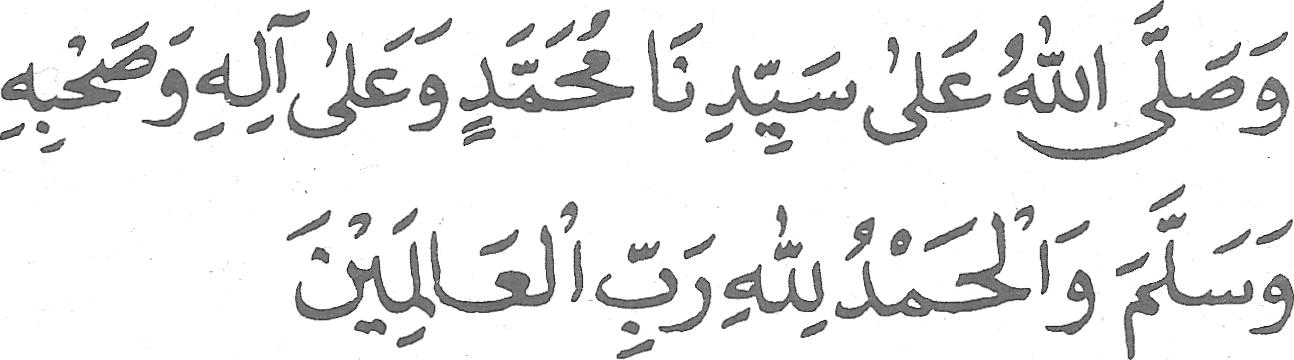 وَصَلَّى اللهُ عَلىٰ سَيِّدِنَا مُحَمَّدٍ وَعَلىٰ آلِهِ وَصَحْبِهِ
وَسَلَّمَ وَالْحَمْدُ لِلّٰهِ رَبِّ الْعَالَمِيْنَ